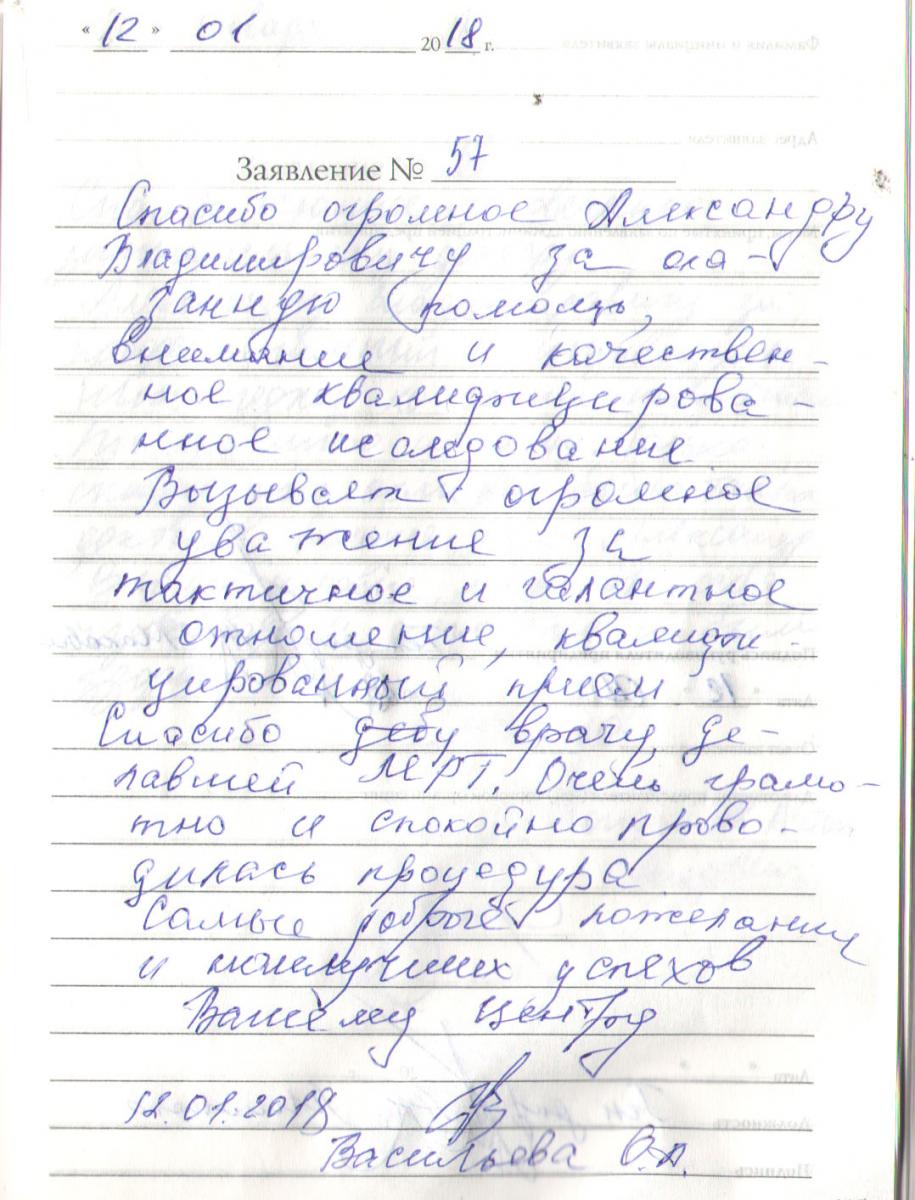 « 12 » 01 2018 г.
Заявление № 57
Спасибо огромное Александру
Владимировичу за ока-
занную помощь,
внимание и качествен-
ное квалифицирова-
нное исследование
Вызывает огромное
уважение за
тактичное и галантное
отношение, квалифи
цированный прием
Спасибо врачу де-
лавшей МРТ. Очень грамо-
тно и спокойно прово-
дилась процедура
Самые добрые пожелания
и наилучших успехов
Вашему центру
12.01.2018
Васильева О.А.